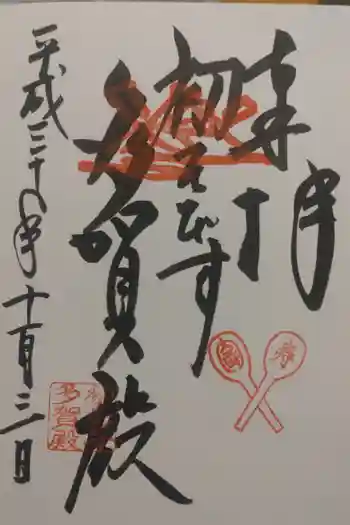 奉拝
初えびす
多賀殿
平成三十年十一月三日
多賀殿